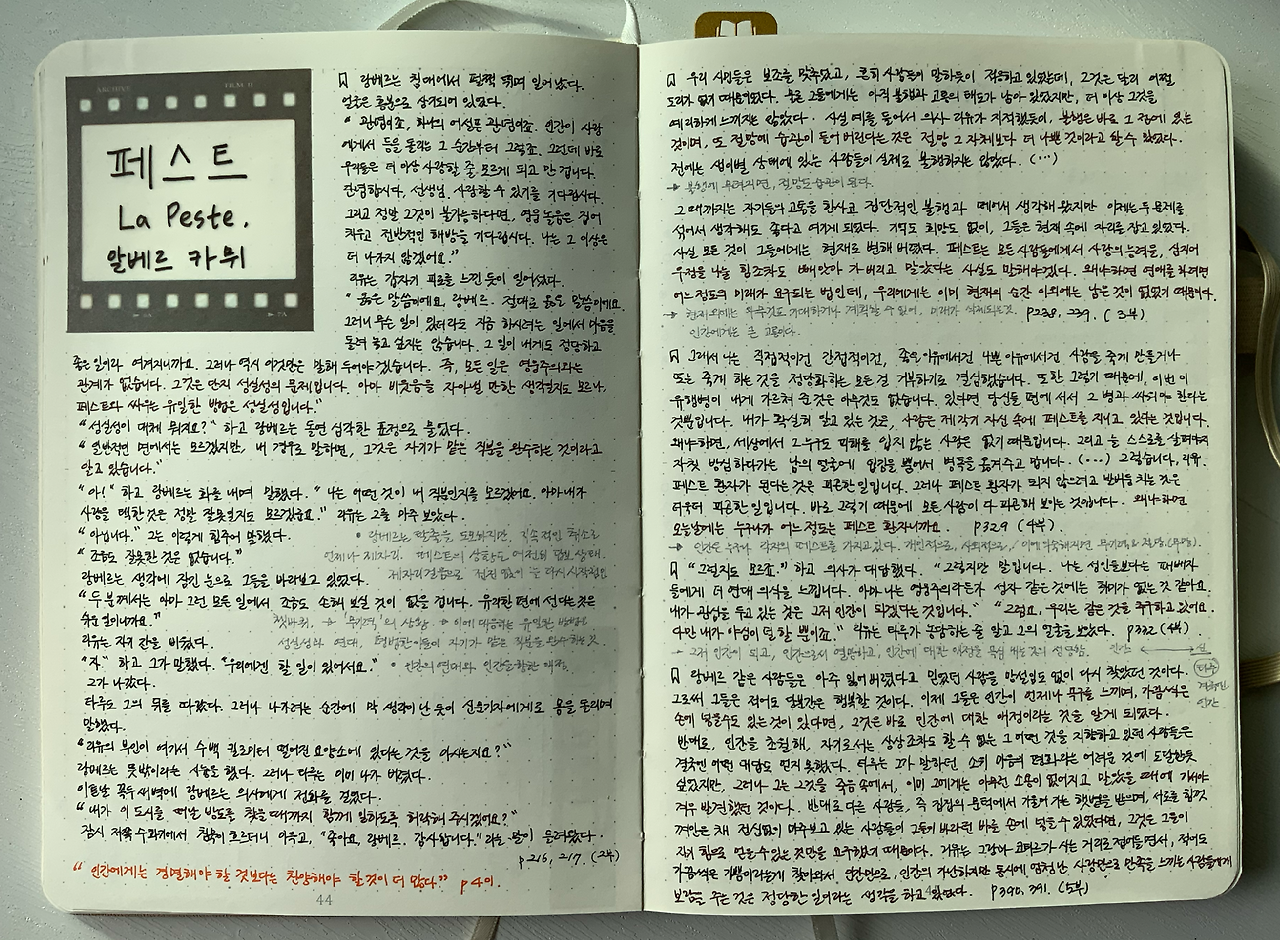 페스트
La Peste.
알베르 카뮈
랑베르는 침대에서 펄쩍 뛰며 일어났다.
얼굴은 흥분으로 상기되어 있었다.
" 관념이죠, 하나의 어설픈 관념이죠. 인간이 사랑
에게서 등을 돌리는 그 순간부터 그렇죠. 그런데 바로
우리들은 더 이상 사랑할 줄 모르게 되고 만 겁니다.
단념합시다, 선생님. 사랑할 수 있기를 기다립시다.
그리고 정말 그것이 불가능하다면, 영웅 놀음은 집어
치우고 전반적인 해방을 기다립시다. 나는 그 이상은
더 나가지 않겠어요."
리유는 갑자기 피로를 느낀 듯이 일어섰다.
" 옳은 말씀이에요, 랑베르. 절대로 옳은 말씀이에요.
그러니 무슨 일이 있더라도 지금 하시려는 일에서 마음을
돌려 놓고 싶지는 않습니다. 그 일이 내게도 정당하고
좋은 일이라 여겨지니까요. 그러나 역시 이것만은 말해 두어야겠습니다. 즉, 모든 일은 영웅주의와는
관계가 없습니다. 그것은 단지 성실성의 문제입니다. 아마 비웃음을 자아낼 만한 생각일지도 모르나,
페스트와 싸우는 유일한 방법은 성실성입니다."
"성실성이 대체 뭐지요?" 하고 랑베르는 돌연 심각한 표정으로 물었다.
" 일반적인 면에서는 모르겠지만, 내 경우로 말하면, 그것은 자기가 맡은 직분을 완수하는 것이라고
알고 있습니다."
"아!" 하고 랑베르는 화를 내며 말했다. "나는 어떤 것이 내 직분인지를 모르겠어요. 아마 내가
사랑을 택한 것은 정말 잘못일지도 모르겠군요." 리유는 그를 마주 보았다.
"아닙니다." 그는 이렇게 힘주어 말했다.
" 조금도 잘못한 것은 없습니다."
랑베르는 생각에 잠긴 눈으로 그들을 바라보고 있었다.
"두 분께서는 아마 그런 모든 일에서 조금도 손해 보실 것이 없을 겁니다. 유리한 편에 선다는 것은
쉬운 일이니까요."
리유는 자기 잔을 비웠다.
"자" 하고 그가 말했다. "우리에겐 할 일이 있어서요."
그가 나갔다.
타루도 그의 뒤를 따랐다. 그러나 나가려는 순간에 막 생각이 난 듯이 신문기자에게로 몸을 돌리며
말했다.
"리유의 부인이 여기서 수백 킬로미터 떨어진 요양소에 있다는 것을 아시는지요?"
랑베르는 뜻밖이라는 시늉을 했다. 그러나 타루는 이미 나가 버렸다.
이튿날 꼭두새벽에 랑베르는 의사에게 전화를 걸었다.
"내가 이 도시를 떠날 방도를 찾을 때까지 함께 일하도록 허락해 주시겠어요?"
잠시 저쪽 수화기에서 침묵이 흐르더니 이윽고, "좋아요, 랑베르. 감사합니다." 라는 말이 들려왔다.
p.216, 217. (2부)
" 인간에게는 경멸해야 할 것보다는 찬양해야 할 것이 더 많다." p401.
44
우리 시민들은 보조를 맞추었고, 흔히 사람들이 말하듯이 적응하고 있었는데, 그것은 달리 어쩔
도리가 없기 때문이었다. 물론 그들에게는 아직 불행과 고통의 태도가 남아 있었지만, 더 이상 그것을
예리하게 느끼지는 않았다. 사실 예를 들어서 의사 리유가 지적했듯이, 불행은 바로 그 점에 있는
것이며, 또 절망에 습관이 들어 버린다는 것은 절망 그 자체보다 더 나쁜 것이라고 할 수 있었다.
전에는 생이별 상태에 있는 사람들이 실제로 불행하지는 않았다. (…)
→ 불행에 무뎌지면, 절망도 습관이 된다.
그때까지는 자기들의 고통을 한사코 집단적인 불행과 떼어서 생각해 왔지만 이제는 두 문제를
섞어서 생각해도 좋다고 여기게 되었다. 기억도 희망도 없이, 그들은 현재 속에 자리를 잡고 있었다.
사실 모든 것이 그들에게는 현재로 변해 버렸다. 페스트는 모든 사람들에게서 사랑의 능력을, 심지어
우정을 나눌 힘조차도 빼앗아 가 버리고 말았다는 사실도 말해야겠다. 왜냐하면 연애를 하려면
어느 정도의 미래가 요구되는 법인데, 우리에게는 이미 현재의 순간 이외에는 남은 것이 없었기 때문이다.
p238, 239. (3부)
그래서 나는 직접적이건 간접적이건, 좋은 이유에서건 나쁜 이유에서건 사람을 죽게 만들거나
또는 죽게 하는 것을 정당화하는 모든 걸 거부하기로 결심했습니다. 또한 그렇기 때문에, 이번 이
유행병이 내게 가르쳐 준 것은 아무것도 없습니다. 있다면 당신들 편에 서서 그 병과 싸워야 한다는
것뿐입니다. 내가 확실히 알고 있는 것은, 사람은 제각기 자신 속에 페스트를 지니고 있다는 것입니다.
왜냐하면, 세상에서 그 누구도 피해를 입지 않는 사람은 없기 때문입니다. 그리고 늘 스스로를 살펴야지
자칫 방심하다가는 남의 얼굴에 입김을 뿜어서 병독을 옮겨주고 맙니다. (…) 그렇습니다, 리유.
페스트 환자가 된다는 것은 피곤한 일입니다. 그러나 페스트 환자가 되지 않으려고 발버둥 치는 것은
더욱더 피곤한 일입니다. 바로 그렇기 때문에 모든 사람이 다 피곤해 보이는 것입니다. 왜냐하면
오늘날에는 누구나가 어느 정도는 페스트 환자니까요. p329 (4부)
" 그럴지도 모르죠." 하고 의사가 대답했다. "그렇지만 말입니다. 나는 성인들보다는 패배자
들에게 더 연대 의식을 느낍니다. 아마 나는 영웅주의라든가 성자 같은 것에는 취미가 없는 것 같아요.
내가 관심을 두고 있는 것은 그저 인간이 되겠다는 것입니다." "그럼요, 우리는 같은 것을 추구하고 있어요.
다만 내가 야심이 덜 할 뿐이죠." 리유는 타루가 농담하는 줄 알고 그의 얼굴을 보았다. p332 (4부)
랑베르 같은 사람들은 아주 잃어버렸다고 믿었던 사람을 망설임도 없이 다시 찾았던 것이다.
그로써 그들은 적어도 얼마간은 행복할 것이다. 이제 그들은 인간이 언제나 욕구를 느끼며, 가끔씩은
손에 넣을 수도 있는 것이 있다면, 그것은 바로 인간에 대한 애정이라는 것을 알게 되었다.
반대로, 인간을 초월해, 자기로서는 상상조차도 할 수 없는 그 어떤 것을 지향하고 있던 사람들은
결국엔 어떤 대답도 얻지 못했다. 타루는 그가 말하던 소위 마음의 평화라는 어려운 것에 도달한 듯
싶었지만, 그러나 그는 그것을 죽음 속에서, 이미 그에게는 아무런 소용이 없어지고 말았을 때에 가서야
겨우 발견했던 것이다. 반대로 다른 사람들, 즉 집집의 문턱에서 기울어 가는 햇볕을 받으며, 서로를 힘껏
껴안은 채 정신없이 마주보고 있는 사람들이 그들이 바라던 바를 손에 넣을 수 있었다면, 그것은 그들이
자기 힘으로 얻을 수 있는 것만을 요구했기 때문이다. 리유는 그랑과 코타르가 사는 거리로 접어들면서, 적어도
가끔씩은 기쁨이라는 게 찾아와서, 인간만으로, 인간의 가난하지만 동시에 엄청난 사랑만으로 만족을 느끼는 사람들에게
보람을 주는 것은 정당한 일이라는 생각을 하고 있었다. p390, 391. (5부)